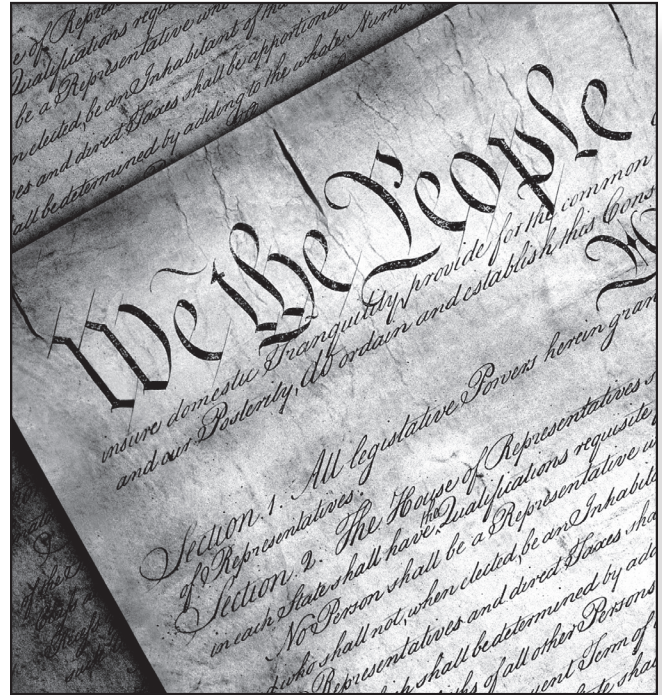 e of Repres
Qualifications requi
be a Representative who
n elected, be an Inhabitant of tha
es and direct Taxes shall be apportioned
all be determined by adding to the whole Numb
We the People
insure domestic Tranquility, provide for the common
and our Posterity, do ordain and establish this Cons
Section. 1. All legislative Powers herein gran
of Representatives.
Section. 2. The House of Representatives
in each State shall have the Qualifications requisite
No Person shall be a Representative
who shall not, when elected, be an Inhabit
Representatives and direct Taxes sha
ich shall be determined by add
of all other Persons
ent Term of